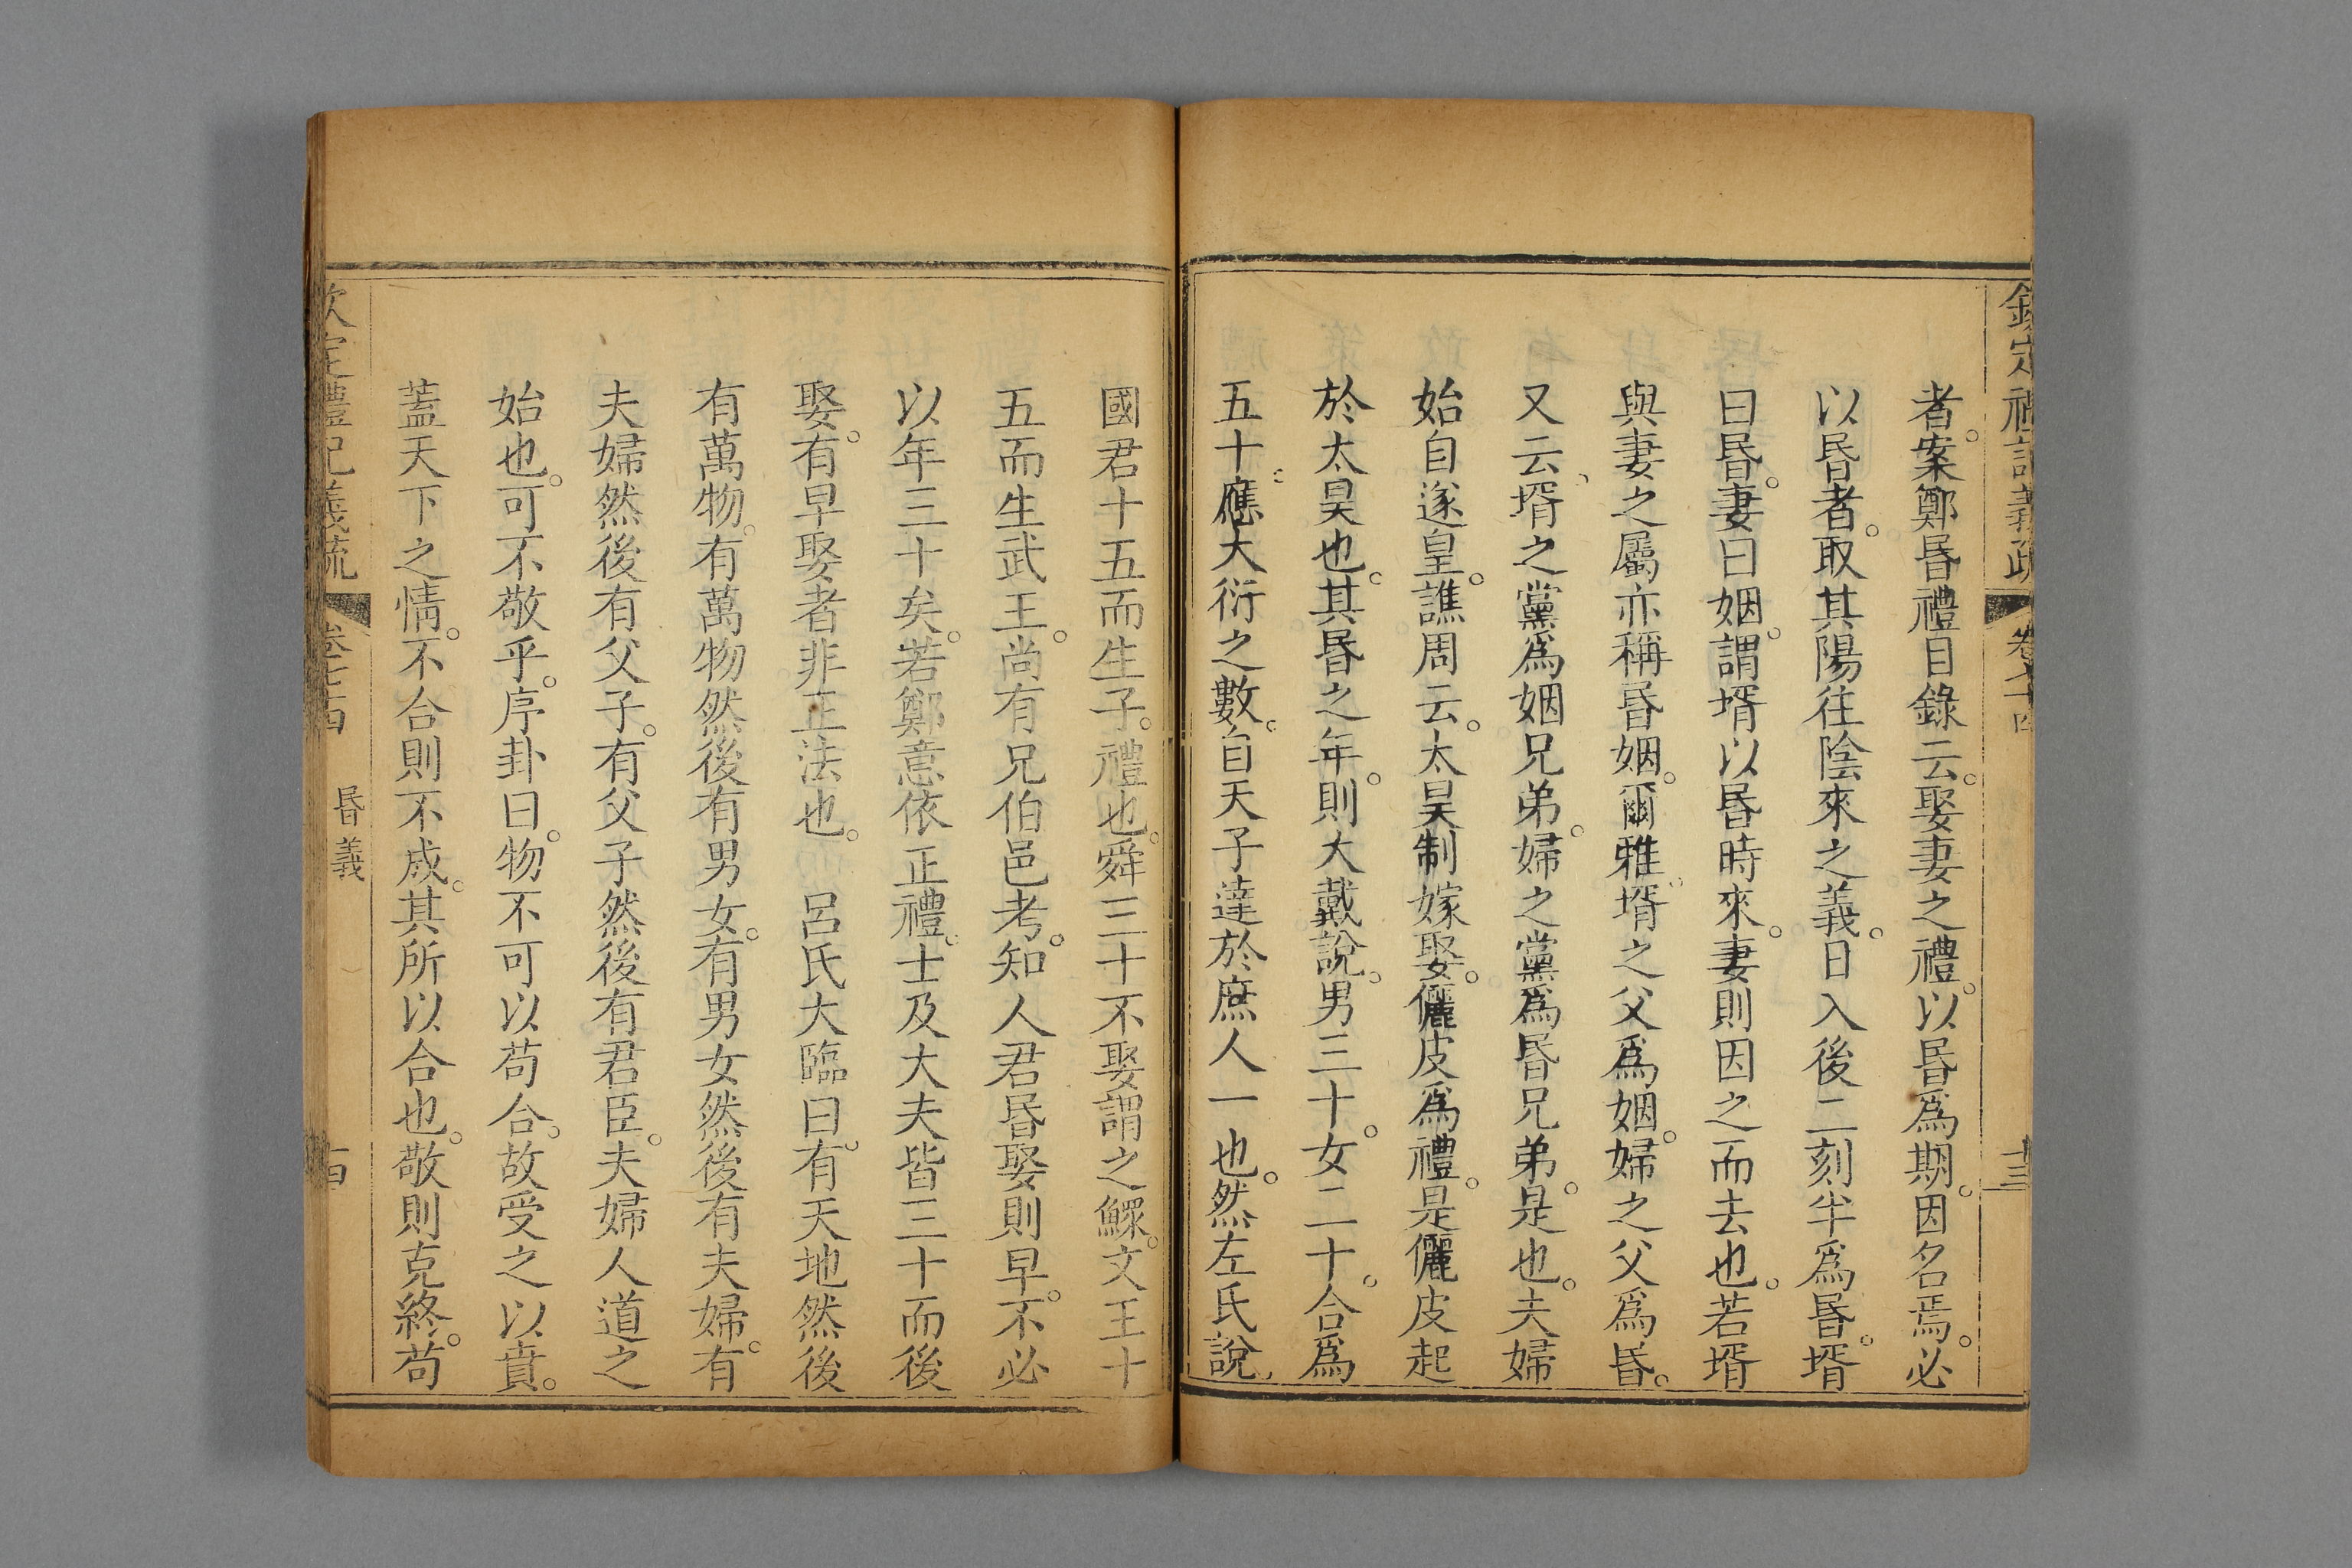 欽定禮記義疏 卷七十四 十三
者。案鄭昬禮目錄云。娶妻之禮。以昬爲期。因名焉。必
以昬者。取其陽往陰來之義。日入後二刻半爲昬。壻
曰昬。妻曰姻。謂壻以昬時來。妻則因之而去也。若壻
與妻之屬亦稱昬姻。爾雅。壻之父爲姻。婦之父爲昬。
又云、壻之黨爲姻兄弟。婦之黨爲昬兄弟。是也。夫婦
始自遂皇。譙周云。太昊制嫁娶。儷皮爲禮。是儷皮起
於太昊也。其昬之年。則大戴說。男三十。女二十。合爲
五十。應大衍之數。自天子達於庶人一也。然左氏說、
國君十五而生子。禮也。舜三十不娶謂之鰥。文王十
五而生武王。尚有兄伯邑考。知人君昬娶則早。不必
以年三十矣。若鄭意依正禮。士及大夫皆三十而後
娶。有早娶者非正法也。 呂氏大臨曰。有天地然後
有萬物。有萬物然後有男女。有男女然後有夫婦。有
夫婦然後有父子。有父子然後有君臣。夫婦人道之
始也。可不敬乎。序卦曰。物不可以苟合。故受之以賁。
蓋天下之情。不合則不成。其所以合也。敬則克終。苟
欽定禮記義疏 卷七十四 昬義 十四